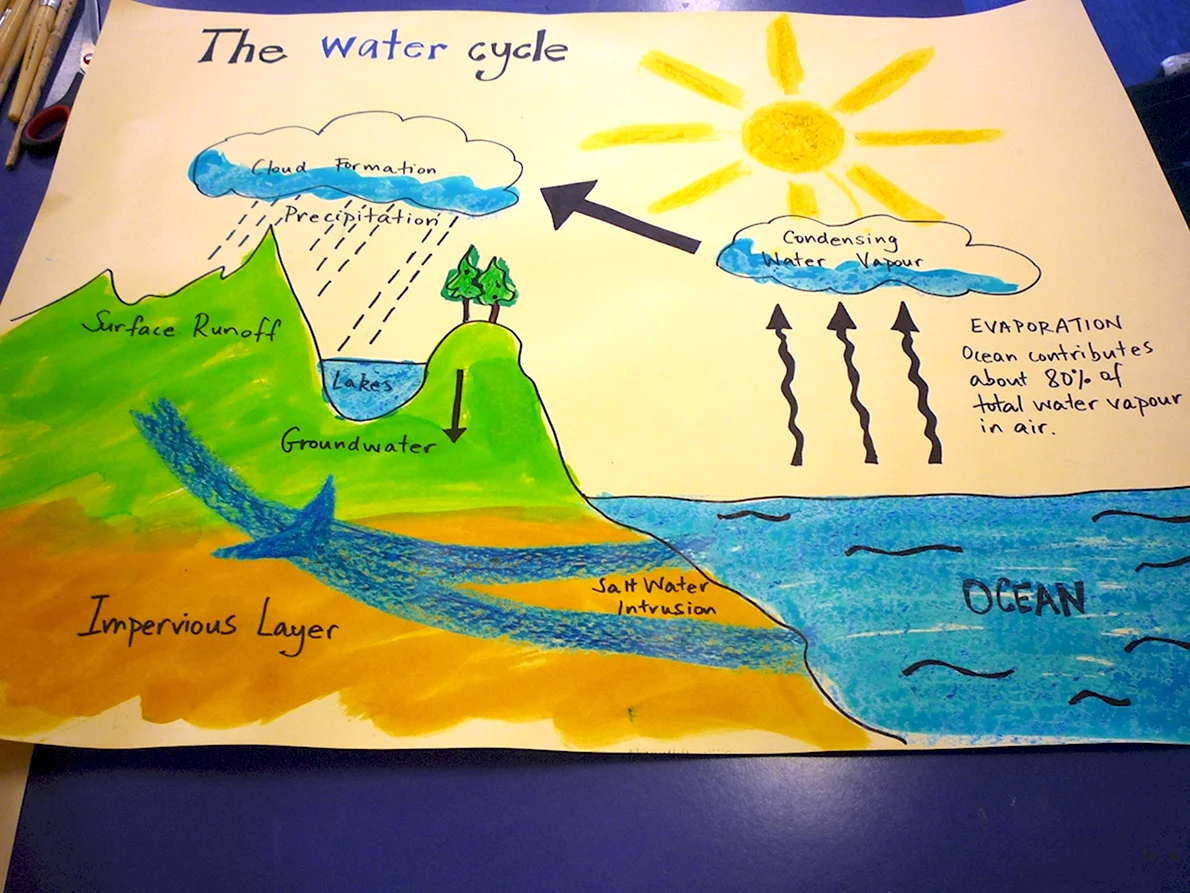 The water cycle
Cloud Formation
Precipitation
Condensing
Water Vapour
EVAPORATION
Ocean contributes
about 80% of
total water vapour
in air.
Surface Runoff
Lakes
Groundwater
Salt Water
Intrusion
OCEAN
Impervious Layer